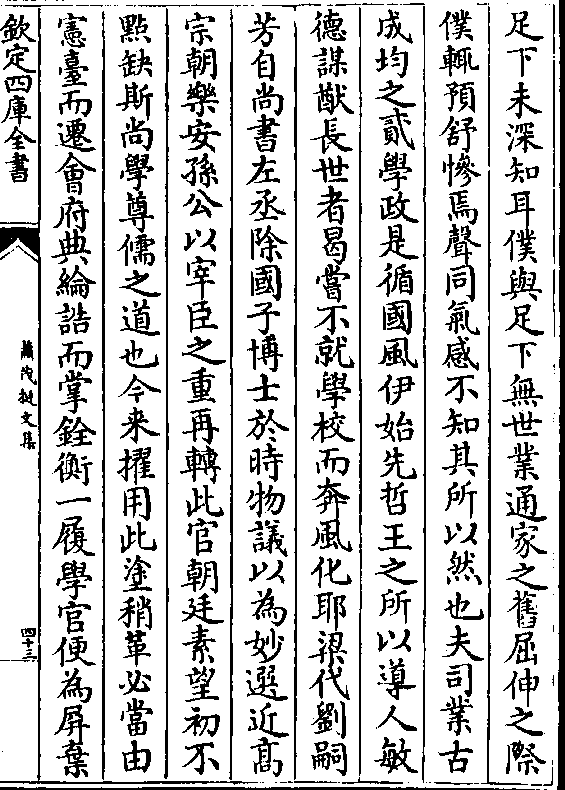 足下未深知耳僕與足下無世業通家之舊屈伸之際
僕輒預舒慘焉聲同氣感不知其所以然也夫司業古
成均之貳學政是循國風伊始先哲王之所以導人敏
德謀猷長世者曷嘗不就學校而奔風化耶梁代劉嗣
芳自尚書左丞除國子博士於時物議以為妙選近高
宗朝樂安孫公以宰臣之重再轉此官朝廷素望初不
點缺斯尚學尊儒之道也今来擢用此塗稍革必當由
憲臺而遷會府典綸誥而掌銓衡一履學官便為屏棄
欽定四庫全書
蕭茂挺文集
四十三